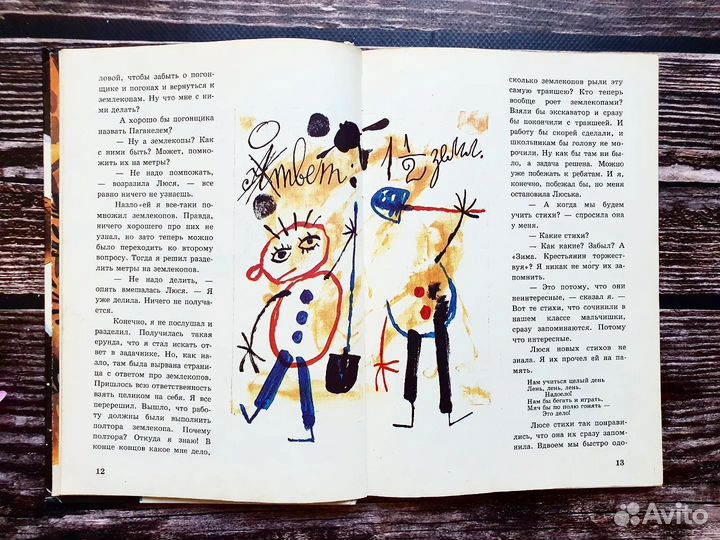 ловой, чтобы забыть о погон-
щике и погонах и вернуться к
землекопам. Ну что мне с ни-
ми делать?
А хорошо бы погонщика
назвать Паганелем?
— Ну а землекопы? Как
с ними быть? Может, помно-
жить их на метры?
— Не надо помножать,
— возразила Люся, — все
равно ничего не узнаешь.
Назло ей я все-таки по-
множил землекопов. Правда,
ничего хорошего про них не
узнал, но зато теперь можно
было переходить ко второму
вопросу. Тогда я решил разде-
лить метры на землекопов.
— Не надо делить, —
опять вмешалась Люся. — Я
уже делила. Ничего не получа-
ется.
Конечно, я не послушал и
разделил. Получилась такая
ерунда, что я стал искать от-
вет в задачнике. Но, как на-
зло, там была вырвана страни-
ца с ответом про землекопов.
Пришлось всю ответственность
взять целиком на себя. Я все
перерешил. Вышло, что рабо-
ту должны были выполнить
полтора землекопа. Почему
полтора? Откуда я знаю! В
конце концов какое мне дело,
12
Ответ: 1 1/2 земл.
сколько землекопов рыли эту
самую траншею? Кто теперь
вообще роет землекопами?
Взяли бы экскаватор и сразу
бы покончили с траншеей. И
работу бы скорей сделали, и
школьникам бы голову не мо-
рочили. Ну как бы там ни бы-
ло, а задача решена. Можно
уже побежать к ребятам. И я,
конечно, побежал бы, но меня
остановила Люська.
— А когда мы будем
учить стихи? — спросила она
у меня.
— Какие стихи?
— Как какие? Забыл? А
«Зима. Крестьянин торжест-
вуя»? Я никак не могу их за-
помнить.
— Это потому, что они
неинтересные, — сказал я. —
Вот те стихи, что сочинили в
нашем классе мальчишки,
сразу запоминаются. Потому
что интересные.
Люся новых стихов не
знала. Я их прочел ей на па-
мять.
Нам учиться целый день
Лень, лень, лень.
Надоело!
Нам бы бегать и играть,
Мяч бы по полю гонять —
Это дело!
Люсе стихи так понрави-
лись, что она их сразу запом-
нила. Вдвоем мы быстро одо-
13
Avito